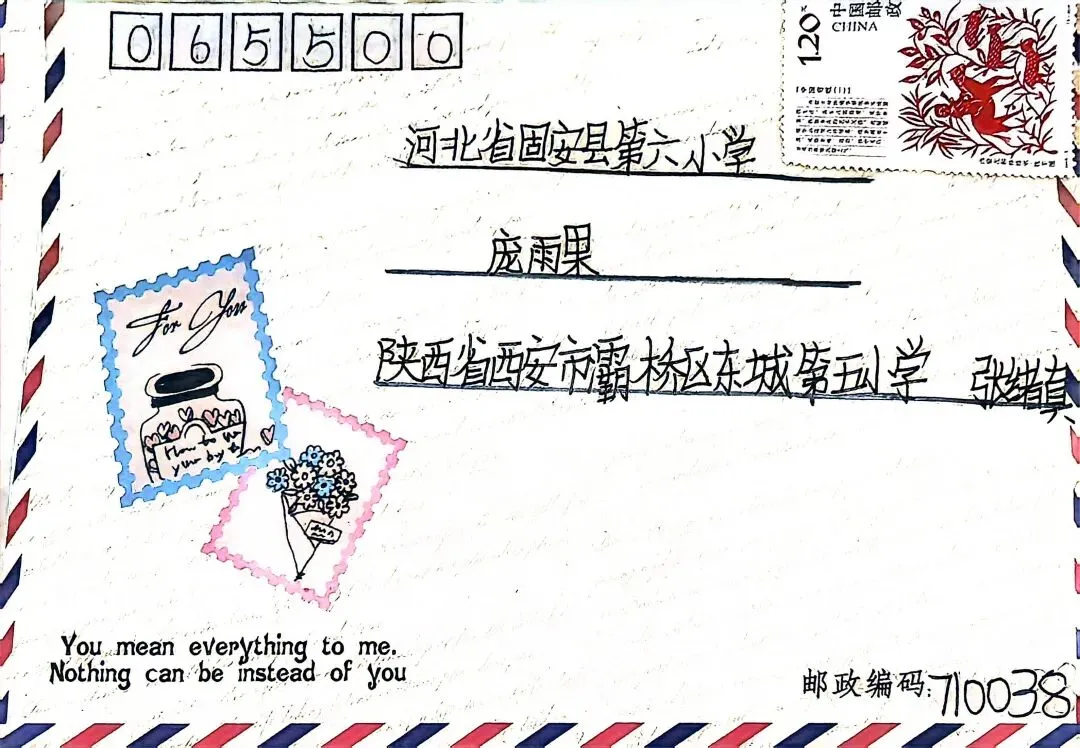 065500
1.20元
中国邮政
CHINA
河北省固安县第六小学
庞雨果
陕西省西安市灞桥区东城第五小学 张绪真
For You
You mean everything to me.
Nothing can be instead of you
邮政编码:710038